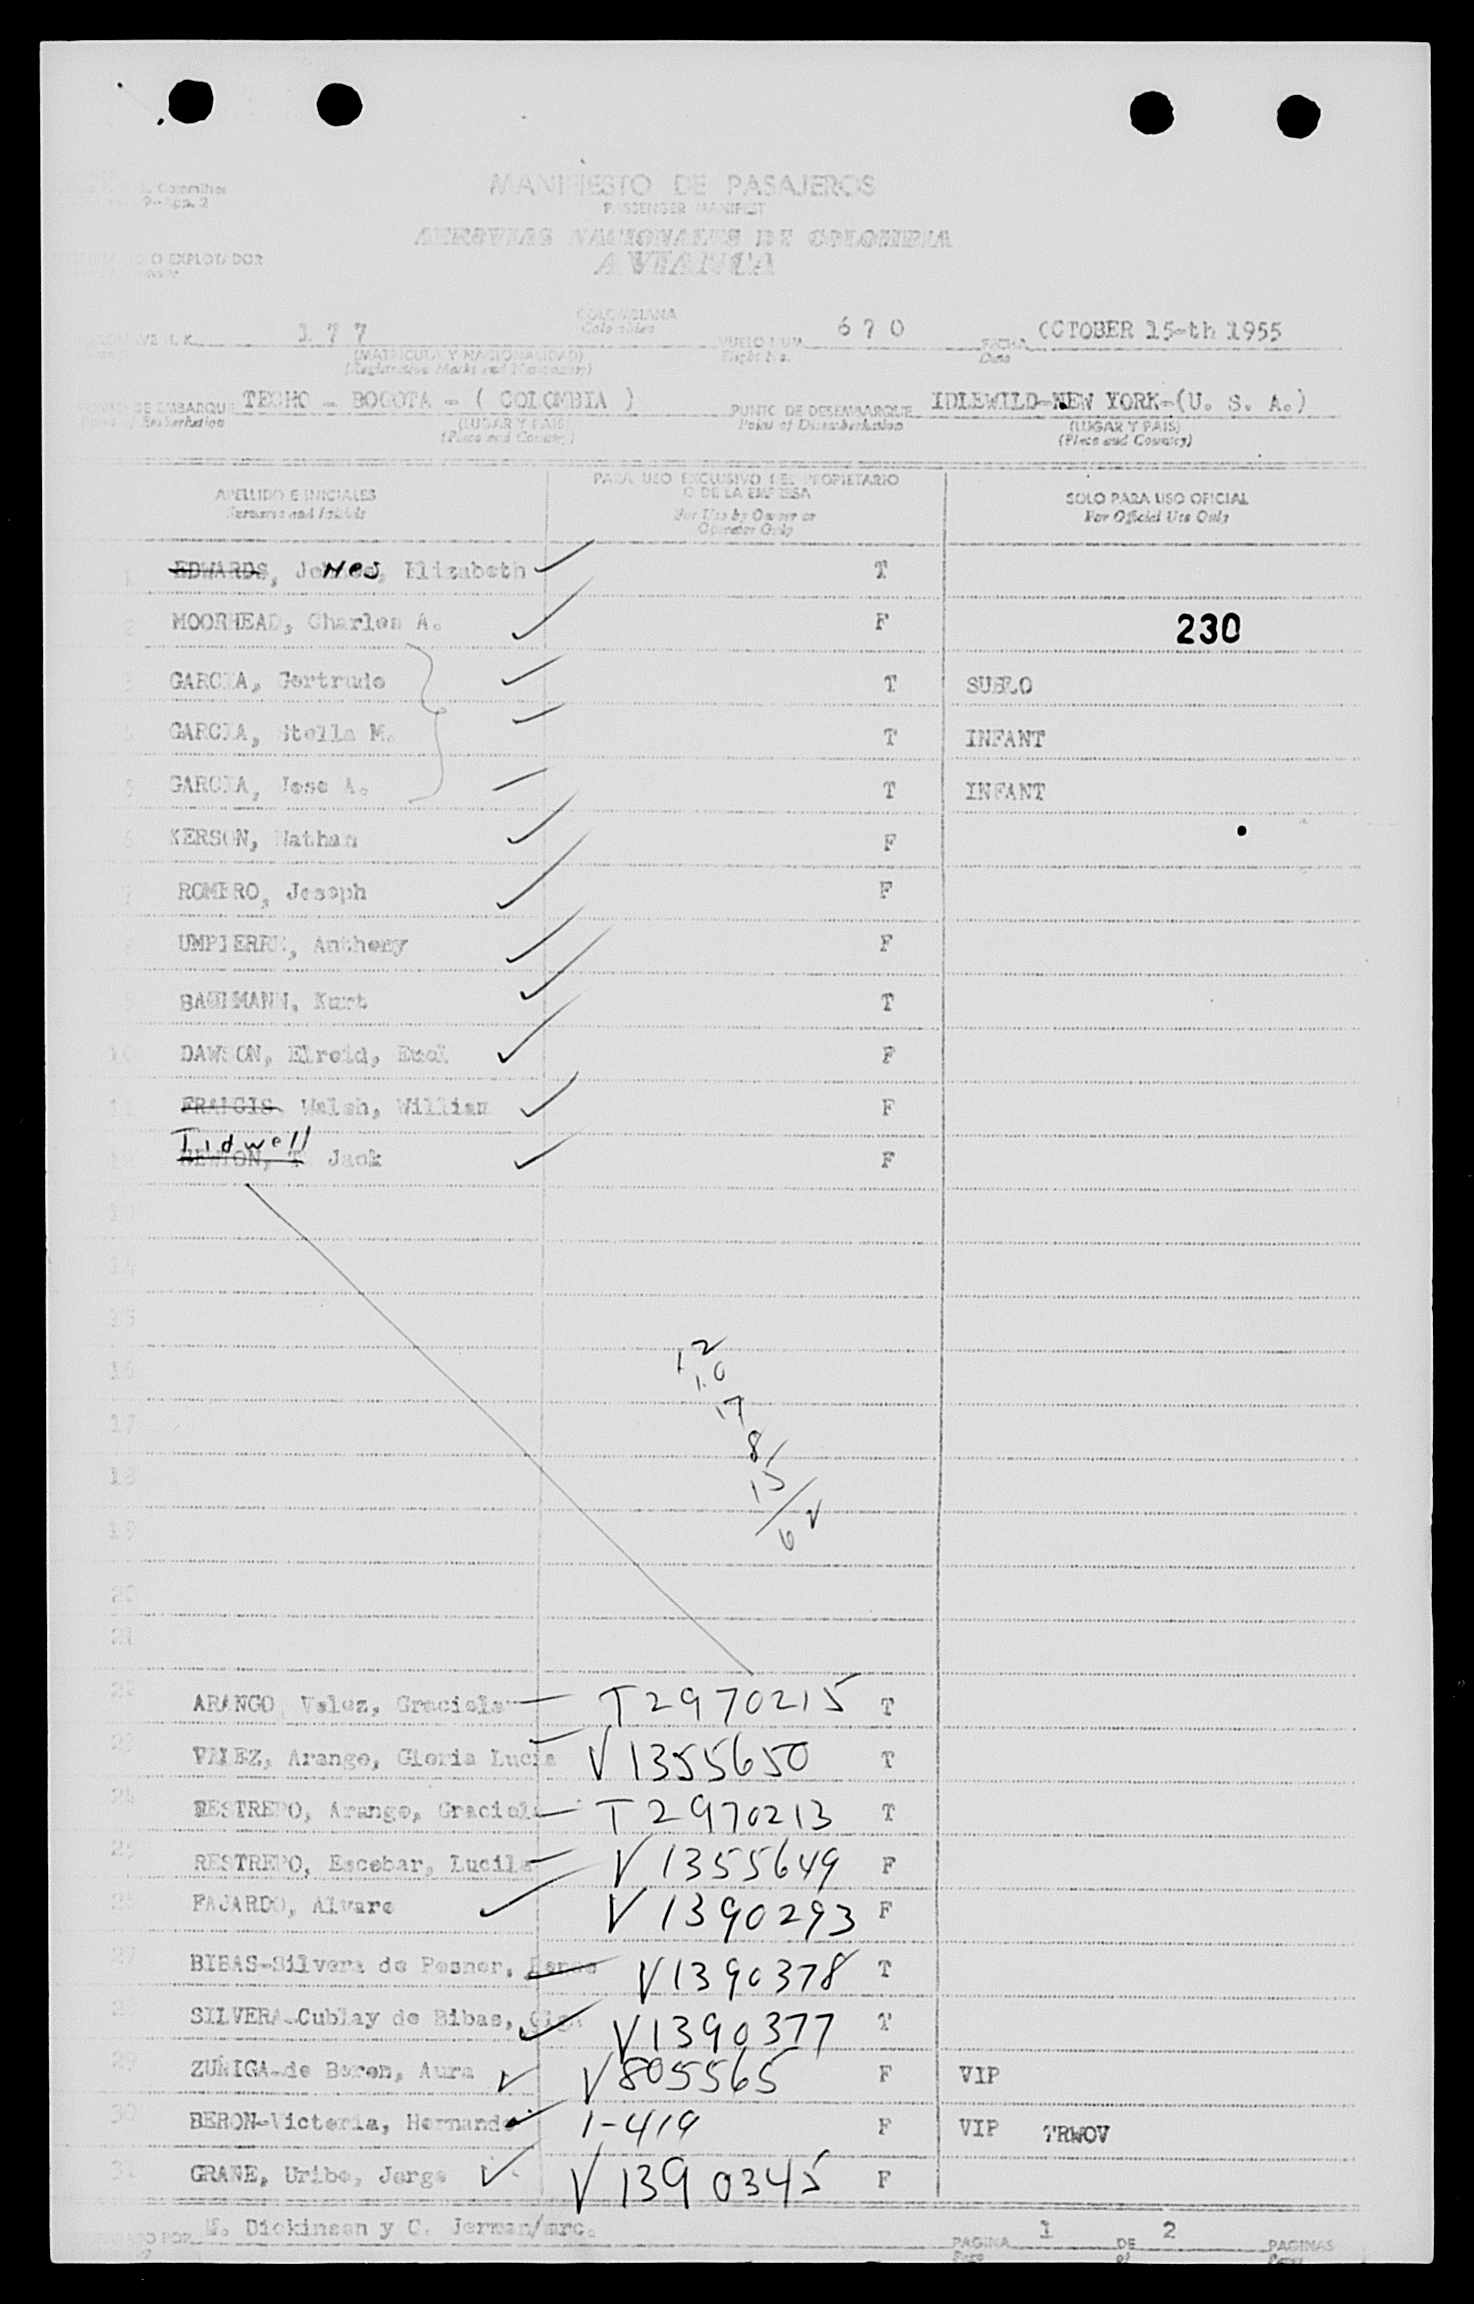 MANIFIESTO DE PASAJEROS
PASSENGER MANIFEST
AEROVIAS NACIONALES DE COLOMBIA
AVIANCA
O EXPLOTADOR
177 COLOMBIANA 670 FECHA OCTOBER 15-th 1955
Colombian
(MATRICULA Y NACIONALIDAD) VUELO NUM. Date
(Registration Marks and Nationality) Flight No.
DE EMBARQUE TECHO - BOGOTA - ( COLOMBIA ) PUNTO DE DESEMBARQUE IDLEWILD-NEW YORK-(U. S. A.)
of Embarkation (LUGAR Y PAIS) Point of Disembarkation (LUGAR Y PAIS)
(Place and Country) (Place and Country)
APELLIDO E INICIALES PARA USO EXCLUSIVO DEL PROPIETARIO O DE LA EMPRESA SOLO PARA USO OFICIAL
Surname and Initials For Use by Owner or Operator Only For Official Use Only
EDWARDS, Elizabeth T
2 MOORHEAD, Charles A. F 230
3 GARCIA, Gertrude T SUELO
GARCIA, Stella M. T INFANT
5 GARCIA, Jose A. T INFANT
6 KERSON, Nathan F
7 ROMERO, Joseph F
UMPIERRE, Anthony F
9 BACHMANN, Kurt T
10 DAWSON, Elreid, F
11 FRANCIS Walsh, William F
Tidwell
NEWTON, T Jack F
13
14
15
12
16
10
17
17
8
18
15
19
62
20
21
22 ARANGO Velez, Graciela T2970215 T
23 VALEZ, Arango, Gloria Lucia V1355650 T
24 RESTREPO, Arango, Graciela T2970213 T
25 RESTREPO, Escobar, Lucila V1355649 F
26 FAJARDO, Alvaro V1390293 F
27 BIBAS-Silvera de Posner, V1390378 T
28 SILVERA-Cublay de Bibas, V1390377 T
29 ZUÑIGA-de Beron, Aura V805565 F VIP
30 BERON-Victoria, Hernando 1-419 F VIP TRWOV
31 GRANE, Uribe, Jorge V1390345 F
M. Dickinson y C. Jerman/mrc. PAGINA 1 DE 2 PAGINAS
Page of Pages